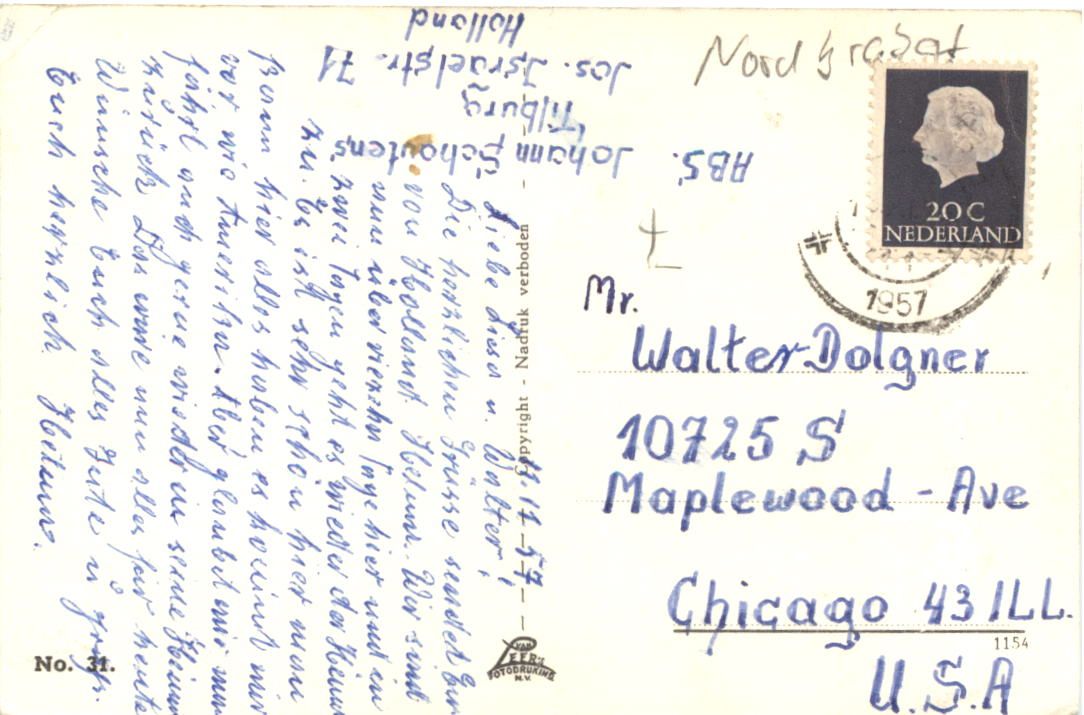 ABS. Johann Schoutens
Tilburg
Jos. Israelstr. 71
Holland
Nord brabat
20 C
NEDERLAND
1957
11.17.57
Liebe Luise u. Walter!
Die herzlichen Grüsse sendet Euch
von Holland. Helmu. Wir sind
nun über vierzehn Tage hier und in
zwei Tagen geht es wieder der Heimat
zu. Es ist sehr schön hier man
kann hier alles haben es kommt mir
vor wie Amerika. Aber glaubt mir man
fährt auch gerne wieder in seine Heimat
zurück. Das wäre nun alles für heute
Wünsche Euch alles Gute u. grüße
Euch herzlich.
Copyright - Nadruk verboden
VAN LEER'S
FOTODRUKIND.
N.V.
Mr.
Walter Dolgner
10725 S
Maplewood - Ave
Chicago 43 ILL.
U.S.A
1154
No. 31.